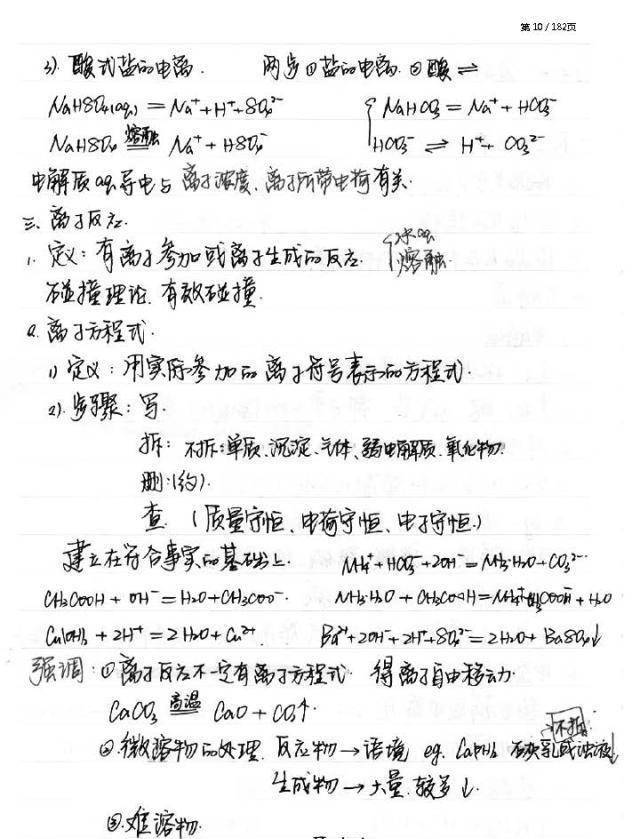 第 10 / 182页
3). 酸式盐的电离. 两步①盐的电离. ②酸 ⇌
NaHSO₄(aq) = Na⁺+H⁺+SO₄²⁻ { NaHCO₃ = Na⁺ + HCO₃⁻
NaHSO₄ 熔融 Na⁺ + HSO₄⁻ HCO₃⁻ ⇌ H⁺ + CO₃²⁻
电解质 aq 导电与 离子浓度、离子所带电荷有关.
三. 离子反应.
1. 定义: 有离子参加或离子生成的反应. { 水aq 熔融
碰撞理论. 有效碰撞.
2. 离子方程式.
1) 定义: 用实际参加的离子符号表示的方程式.
2). 步骤: 写.
拆: 不拆:单质、沉淀、气体、弱电解质、氧化物.
删:(约).
查. (质量守恒、电荷守恒、电子守恒.)
建立在符合事实的基础上. NH₄⁺+HCO₃⁻+2OH⁻=NH₃·H₂O+CO₃²⁻
CH₃COOH + OH⁻ = H₂O+CH₃COO⁻. NH₃·H₂O + CH₃COOH=NH₄⁺+CH₃COO⁻ + H₂O
Ca(OH)₂ + 2H⁺ = 2H₂O + Ca²⁺. Ba²⁺+2OH⁻+2H⁺+SO₄²⁻=2H₂O+ BaSO₄↓
强调: ①离子反应不一定有离子方程式. 得离子自由移动.
CaCO₃ 高温 CaO + CO₂↑.
②.微溶物的处理. 反应物→语境 eg. Ca(OH)₂ 石灰乳或浊液 不拆.
生成物→大量. 较多↓.
③.难溶物.